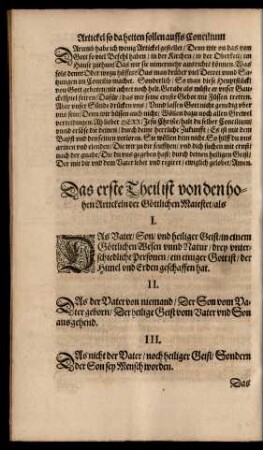 Artickel so da hetten sollen auffs Concilium
Darumb habe ich wenig Artickel gestellet / Denn wir on das vom
Gott so viel Befehl haben / in der Kirchen / in der Oberkeit / im
Hause zuthun / Das wir sie nimmermehr ausrichten können. Was
sols denn? Oder wozu hilffets? Das man drüber viel Decret vnnd Sa-
tzungen im Concilio machet. Sonderlich / So man diese Heuptstück
von Gott geboten / nit achtet noch helt. Gerade als müste er vnser Gau-
ckelspiel feiren / Dafür / das wir seine ernste Gebot mit Füssen tretten.
Aber vnser Sünde drücken vns / Vnnd lassen Gott nicht gnedig vber
vns sein / Denn wir büssen auch nicht: Wöllen dazu noch allen Grewel
verteidingen. Ah lieber HERR Jesu Christe / halt du selber Concilium /
vnnd erlöse die deinen / durch deine herrliche Zukunfft / Es ist mit dem
Bapst vnd den seinen verloren. Sie wöllen dein nicht. So hilff du vns
armen vnd elenden / Die wir zu dir seufftzen / vnd dich suchen mit ernst /
nach der gnade / Die du vns gegeben hast / durch deinen heiligen Geist /
Der mit dir vnd dem Vater lebet vnd regiert / ewiglich gelobet / Amen.
Das erste Theil ist von den ho-
hen Artickeln der Göttlichen Maiestet / als
I.
DAs Vater / Son / vnd heiliger Geist / in einem
Göttlichen Wesen vnnd Natur / drey vnter-
schiedliche Personen / ein einiger Gott ist / der
Himel vnd Erden geschaffen hat.
II.
DAs der Vater von niemand / Der Son vom Va-
ter geborn / Der heilige Geist vom Vater vnd Son
ausgehend.
III.
DAs nicht der Vater / noch heiliger Geist / Sondern
der Son sey Mensch worden.
Das